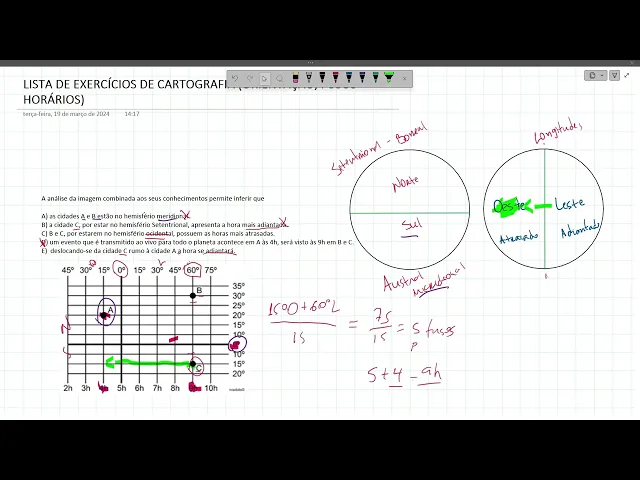 LISTA DE EXERCÍCIOS DE CARTOGRAFIA
HORÁRIOS)
terça-feira, 19 de março de 2024 14:17
A análise da imagem combinada aos seus conhecimentos permite inferir que
A) as cidades A e B estão no hemisfério meridional
B) a cidade C, por estar no hemisfério Setentrional, apresenta a hora mais adiantada
C) B e C, por estarem no hemisfério ocidental, possuem as horas mais atrasadas.
um evento que é transmitido ao vivo para todo o planeta acontece em A às 4h, será visto às 9h em B e C.
E) deslocando-se da cidade C rumo à cidade A a hora se adiantará.
45º 30º 15º 0º 15º 30º 45º 60º 75º
35º
B 30º
25º
A 20º
N 15º
10º
5º
S
10º
C 15º
20º
2h 3h 5h 6h 7h 8h 10h
Setentrional - Boreal
Norte
Sul
Austral
Meridional
Longitudes
Oeste Leste
Atrasado Adiantado
15ºO + 60ºL = 75 = 5 fusos
15 15
5 + 4 - 9h